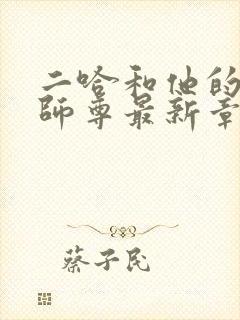 二哈和他的
师尊最新章
蔡子民